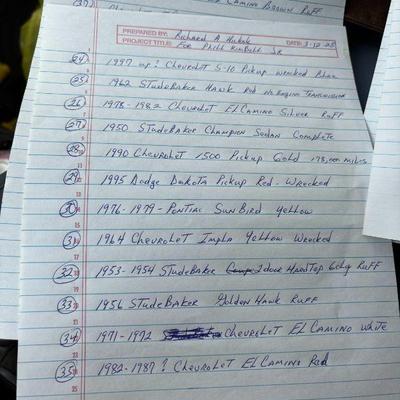 (37) El Camino Brown Ruff
PREPARED BY: Richard A
PROJECT TITLE: For Phill Kimball Jr DATE: 3-12-25
(24) 1997 up? Chevrolet S-10 Pickup wrecked Blue
(25) 1962 StudeBaker Hawk Red No Engine Transmission
(26) 1978-1982 Chevrolet El Camino Silver Ruff
(27) 1950 StudeBaker Champion Sedan Complete
(28) 1990 Chevrolet 1500 Pickup Gold 178,000 miles
(29) 1995 Dodge Dakota Pickup Red - Wrecked
(30) 1976-1979 - Pontiac SunBird Yellow
(31) 1964 Chevrolet Impla Yellow Wrecked
(32) 1953-1954 StudeBaker 2 door HardTop 6cyl Ruff
(33) 1956 StudeBaker Golden Hawk Ruff
(34) 1971-1972 Chevrolet El Camino White
(35) 1982-1987? Chevrolet El Camino Red